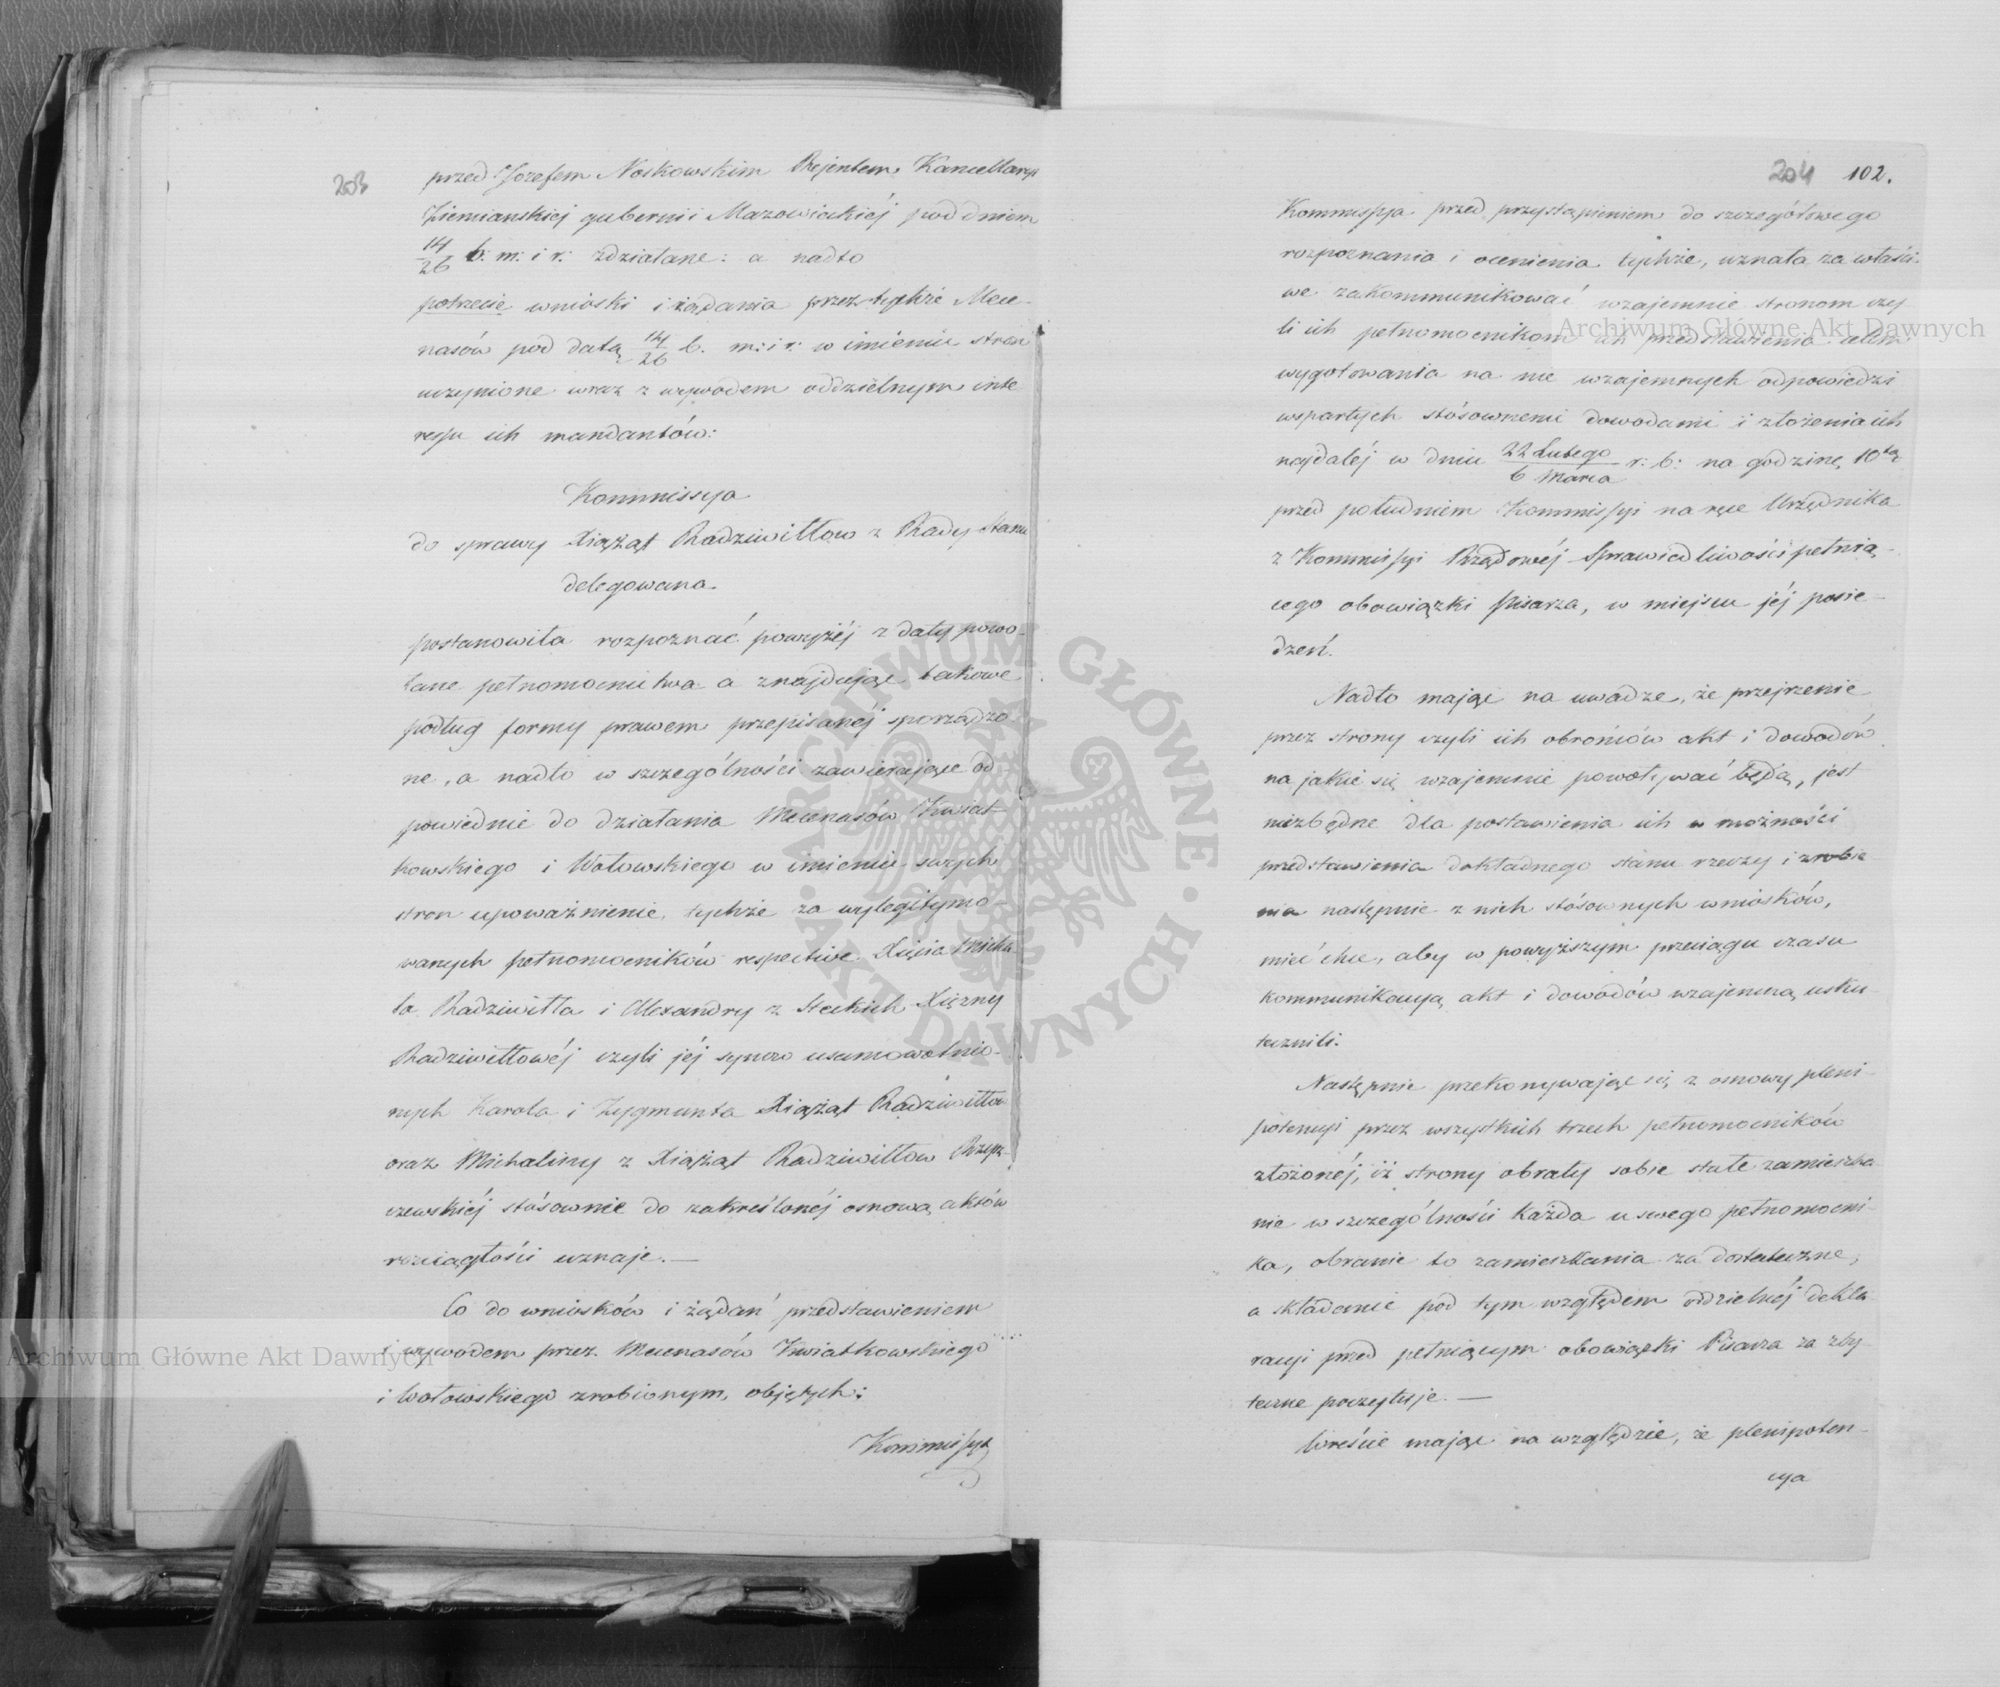 203
przed Jozefem Noskowskim Rejentem Kancellaryi
Ziemianskiej gubernii Mazowieckiéj pod dniem
14/26 b: m: i r: zdziałane: a nadto
potrzecie wnioski i żądania przez tychże Mece-
nasów pod datą 14/26 b. m: i r: w imieniu stron
uczynione wraz z wywodem oddzielnym inte
ressu ich mandantów:
Kommissya
do sprawy Xiążąt Radziwiłłow z Rady Stanu
delegowana.
postanowiła rozpoznać powyżéj z daty powo-
łane pełnomocnictwa a znajdując takowe
podług formy prawem przepisanéj sporządzo-
ne, a nadto w szczególności zawierające od
powiednie do działania Mecenasów Kwiat-
kowskiego i Wołowskiego w imieniu swych
stron upoważnienie, tychże za wylegitymo-
wanych pełnomocników respective Xięcia Micha-
ła Radziwiłła i Alexandry z Steckich Xiężny
Radziwiłłowéj czyli jéj synow usamowolnio-
nych Karola i Zygmunta Xiążąt Radziwiłłow
oraz Michaliny z Xiążąt Radziwiłłow Rzysz-
czewskiéj stósownie do zakreślonéj osnową aktów
rozciągłości uznaje. —
Co do wniosków i żądań przedstawieniem
i wywodem przez Mecenasów Kwiatkowskiego
i Wołowskiego zrobionym, objętych:
Kommissya
204 102.
Kommissya przed przystąpieniem do szczegółowego
rozpoznania i ocenienia tychże, uznała za właści-
we zakommunikować wzajemnie stronom czy
li ich pełnomocnikom ich przedstawienia celem
wygotowania na nie wzajemnych odpowiedzi
wspartych stósownemi dowodami i złożenia ich
najdaléj w dniu 22 Lutego/6 Marca r: b: na godzinę 10tą
przed południem Kommissyi na ręce Urzędnika
z Kommissyi Rządowéj Sprawiedliwości pełnią-
cego obowiązki Pisarza, w miejscu jéj posie-
dzeń.
Nadto mając na uwadze, że przejrzenie
przez strony czyli ich obrońców akt i dowodów
na jakie się wzajemnie powoływać będą, jest
niezbędne dla postawienia ich w możności
przedstawienia dokładnego stanu rzeczy i zrobie
nia następnie z nich stósownych wniosków,
mieć chce, aby w powyższym przeciągu czasu
kommunikacyą akt i dowodów wzajemną usku-
tecznili.
Następnie przekonywając się z osnowy pleni-
potencyi przez wszystkich trzech pełnomocników
złożonéj, iż strony obrały sobie stałe zamieszka
nie w szczególności każda u swego pełnomocni-
ka, obranie to zamieszkania za dostateczne,
a składanie pod tym względem oddzielnéj dekla-
racyi przed pełniącym obowiązki Pisarza za zby-
teczne poczytuje. —
Wreście mając na względzie, że plenipoten-
cya
Archiwum Główne Akt Dawnych
Archiwum Główne Akt Dawnych
· ARCHIWUM GŁÓWNE · AKT DAWNYCH